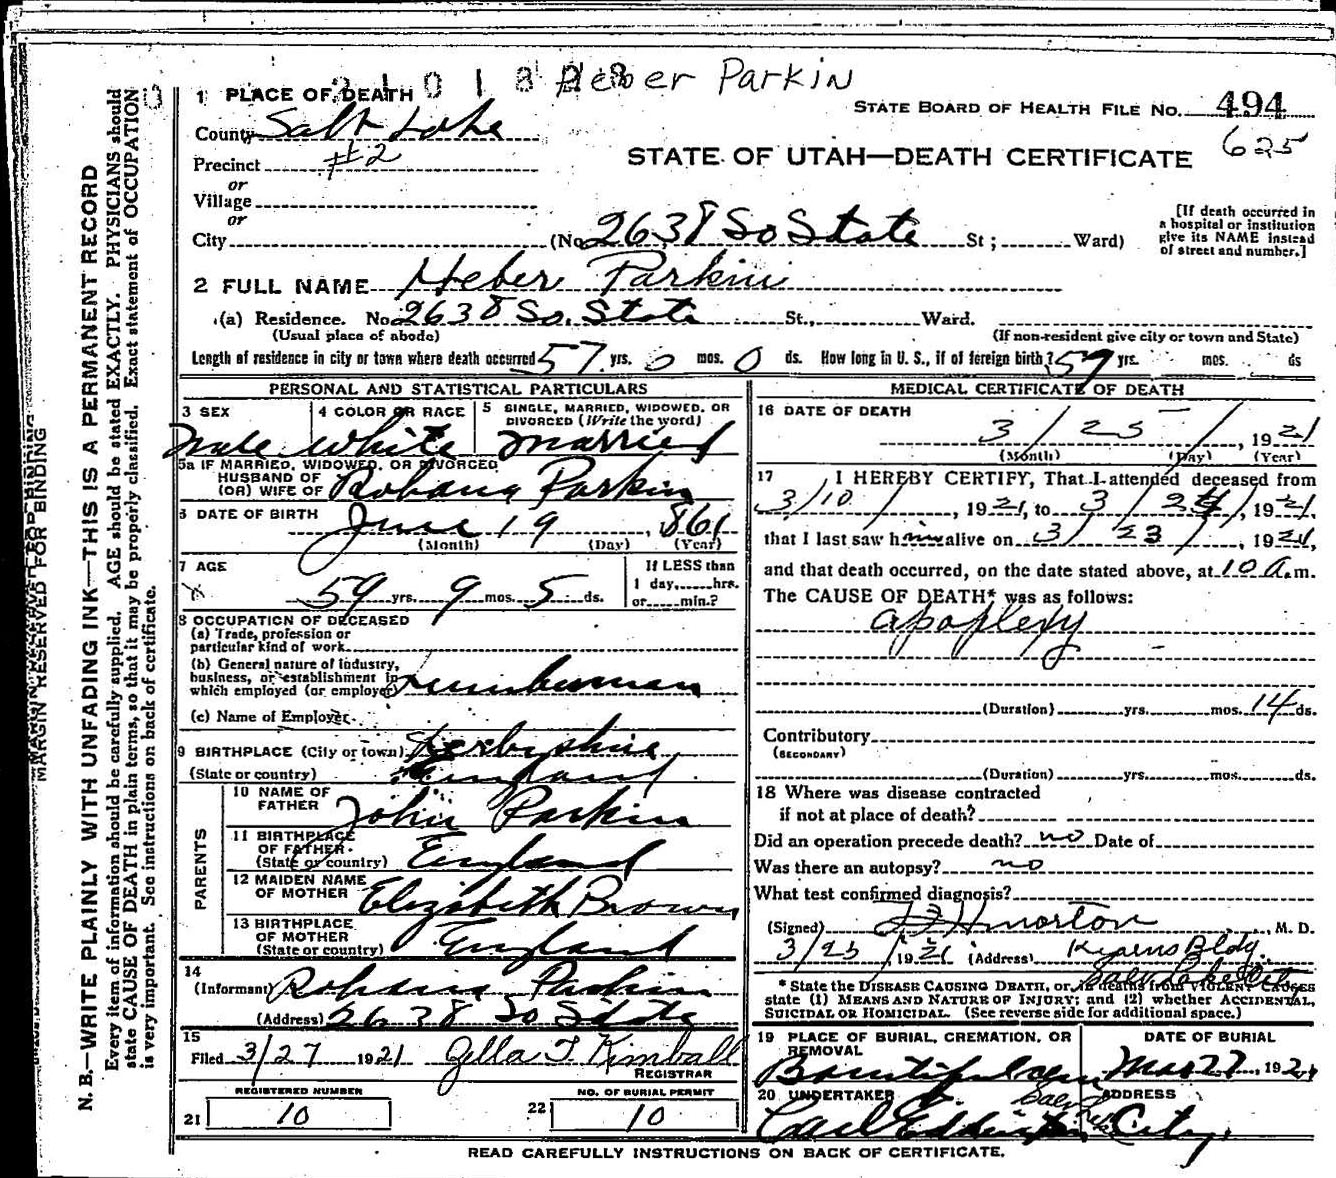 Heber Parkin
1 PLACE OF DEATH
STATE BOARD OF HEALTH FILE NO. 494
County Salt Lake
625
STATE OF UTAH—DEATH CERTIFICATE
Precinct #2
or
Village
or
City (No. 2638 So State St; Ward)
[If death occurred in
a hospital or institution
give its NAME instead
of street and number.]
2 FULL NAME Heber Parkin
(a) Residence. No. 2638 So. State St., Ward.
(Usual place of abode) (If non-resident give city or town and State)
Length of residence in city or town where death occurred 57 yrs. 0 mos. 0 ds. How long in U. S., if of foreign birth? 57 yrs. mos. ds
PERSONAL AND STATISTICAL PARTICULARS
3 SEX 4 COLOR OR RACE 5 SINGLE, MARRIED, WIDOWED, OR
DIVORCED (Write the word)
Male White Married
5a IF MARRIED, WIDOWED, OR DIVORCED
HUSBAND OF
(OR) WIFE OF Rohana Parkin
6 DATE OF BIRTH June 19, 1861
(Month) (Day) (Year)
7 AGE If LESS than
1 day, hrs.
59 yrs. 9 mos. 5 ds. or min.?
8 OCCUPATION OF DECEASED
(a) Trade, profession or
particular kind of work
(b) General nature of industry,
business, or establishment in
which employed (or employer)
(c) Name of Employer
9 BIRTHPLACE (City or town) Derbyshire
(State or country) England
PARENTS
10 NAME OF
FATHER John Parkin
11 BIRTHPLACE
OF FATHER
(State or country) England
12 MAIDEN NAME
OF MOTHER Elizabeth Brown
13 BIRTHPLACE
OF MOTHER
(State or country) England
14
(Informant) Rohana Parkin
(Address) 2638 So State
15
Filed 3/27 1921 Zella T. Kimball
REGISTRAR
REGISTERED NUMBER NO. OF BURIAL PERMIT
21 10 22 10
MEDICAL CERTIFICATE OF DEATH
16 DATE OF DEATH
3 / 25 /, 1921
(Month) (Day) (Year)
17 I HEREBY CERTIFY, That I attended deceased from
3/10/, 1921, to 3/24/, 1921,
that I last saw him alive on 3/23/, 1921,
and that death occurred, on the date stated above, at 10 A.m.
The CAUSE OF DEATH* was as follows:
apoplexy
(Duration) yrs. mos. 14 ds.
Contributory
(SECONDARY)
(Duration) yrs. mos. ds.
18 Where was disease contracted
if not at place of death?
Did an operation precede death? no Date of
Was there an autopsy? no
What test confirmed diagnosis?
(Signed) Morton, M. D.
3/25/1921 (Address) Kearns Bldg.
Salt Lake City
* State the DISEASE CAUSING DEATH, or, in deaths from VIOLENT CAUSES
state (1) MEANS AND NATURE OF INJURY; and (2) whether ACCIDENTAL,
SUICIDAL OR HOMICIDAL. (See reverse side for additional space.)
19 PLACE OF BURIAL, CREMATION, OR
REMOVAL DATE OF BURIAL
Bountiful Cem Mar 27, 1921
20 UNDERTAKER ADDRESS
Salt Lake
City.
READ CAREFULLY INSTRUCTIONS ON BACK OF CERTIFICATE.
MARGIN RESERVED FOR BINDING
N. B.—WRITE PLAINLY WITH UNFADING INK—THIS IS A PERMANENT RECORD
Every item of information should be carefully supplied. AGE should be stated EXACTLY. PHYSICIANS should
state CAUSE OF DEATH in plain terms, so that it may be properly classified. Exact statement of OCCUPATION
is very important. See instructions on back of certificate.